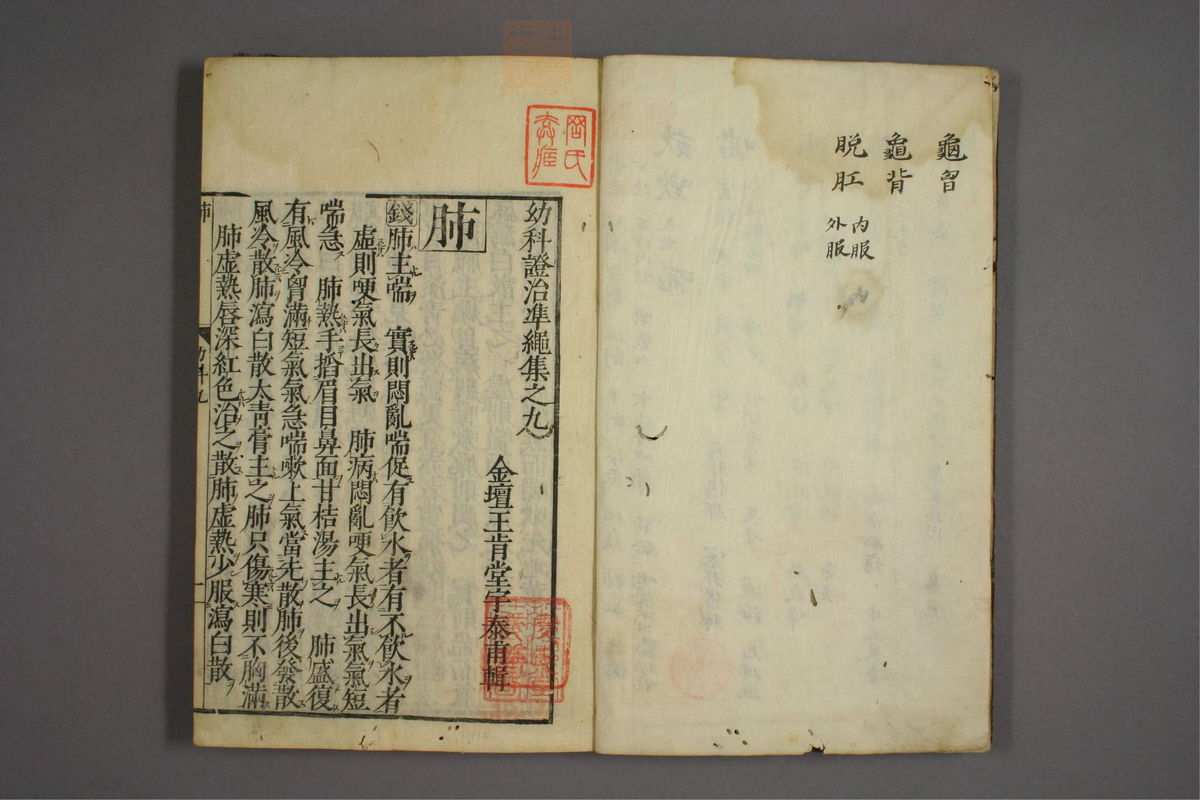 龜胷
龜背
脱肛 内服
外服
幼科證治準繩集之九
金壇王肯堂宇泰甫輯
肺
錢肺主喘 實則悶亂喘促有飲水者有不飲水者
虛則哽氣長出氣 肺病悶亂哽氣長出氣氣短
喘急 肺熱手掐眉目鼻面甘桔湯主之 肺盛復
有風冷胷滿短氣氣急喘嗽上氣當先散肺後發散
風冷散肺瀉白散太青膏主之肺只傷寒則不胸滿
肺虛熱唇深紅色治之散肺虛熱少服瀉白散
肺
幼科九